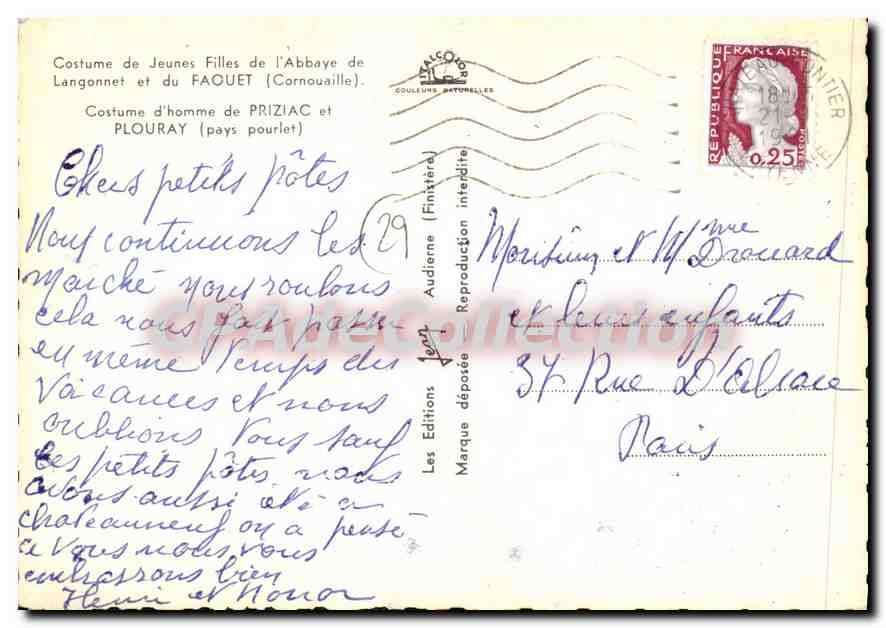 Costume de Jeunes Filles de l'Abbaye de
Langonnet et du FAOUET (Cornouaille).
Costume d'homme de PRIZIAC et
PLOURAY (pays pourlet)
ITALCOLOR
COULEURS NATURELLES
REPUBLIQUE FRANÇAISE
0,25
POSTES
18
21
Chers petits pôtes
Nous continuons les
marché nous roulons
cela nous fait passer
en même temps des
vacances et nous
oublions vous sauf
les petits pôtes nous
avons aussi été a
chateauneuf on a pensé
a vous nous vous
embrassons bien
Henri et Nonor
29
Les Editions Jean Audierne (Finistère)
Marque déposée Reproduction interdite
Monsieur et Mme Drouard
et leurs enfants
37 Rue D'Alsace
Paris
CPAdeCollection